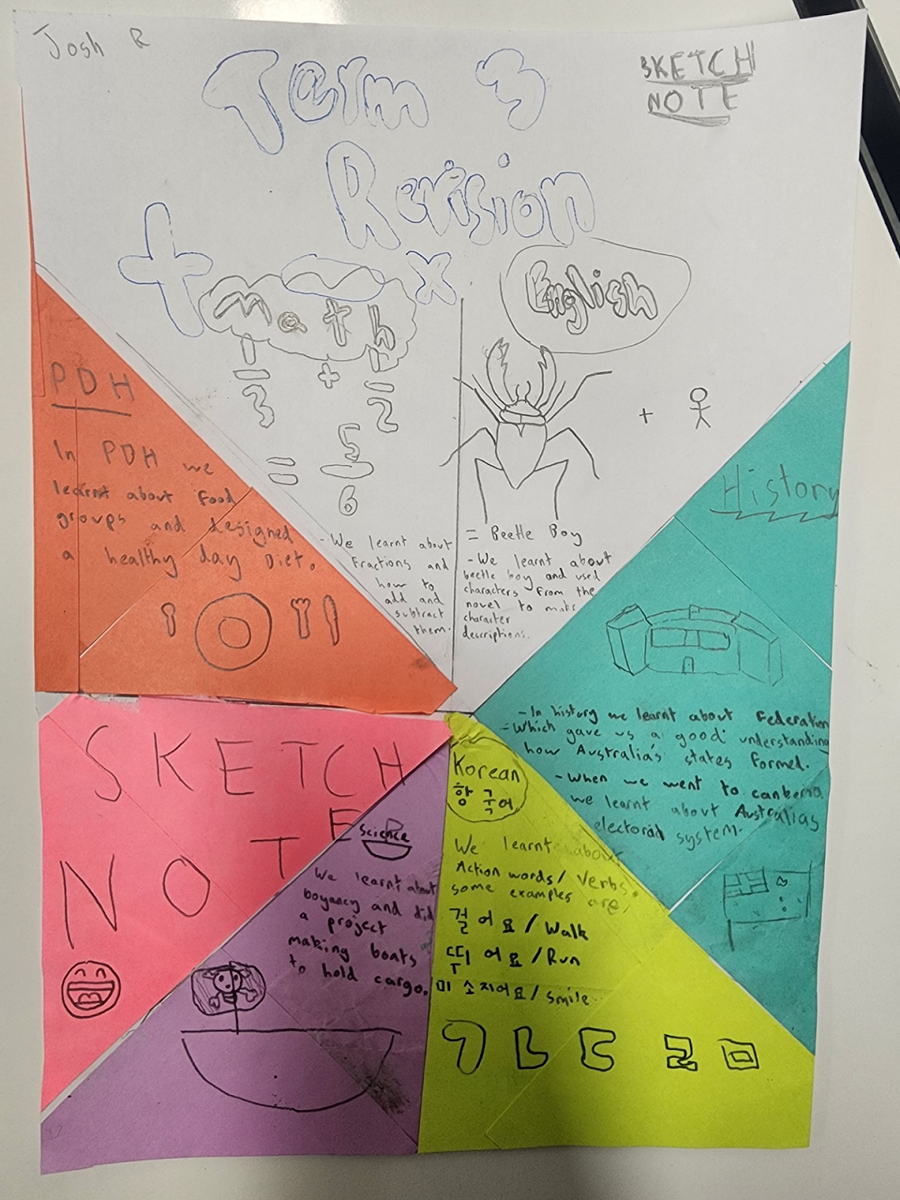 Josh R
SKETCH
NOTE
Term 3
Revision
+ math x
1/3 + 1/2
= 5/6
- We learnt about
Fractions and
how to
add and
subtract
them.
English
+
= Beetle Boy
- We learnt about
beetle boy and used
characters from the
novel to make
character
descriptions.
PDH
In PDH we
learnt about Food
groups and designed
a healthy day Diet.
History
- In history we learnt about Federation
- Which gave us a good understanding
how Australia's states formed.
- When we went to canberra
we learnt about Australias
electoral system.
SKETCH
NOTE
Science
We learnt about
boyancy and did
a project
making boats
to hold cargo.
Korean
항국어
We learnt about
Action words/ Verbs.
some examples are,
걸어요/Walk
뛰어요/Run
미소지어요/smile
ㄱㄴㄷㄹㅁ